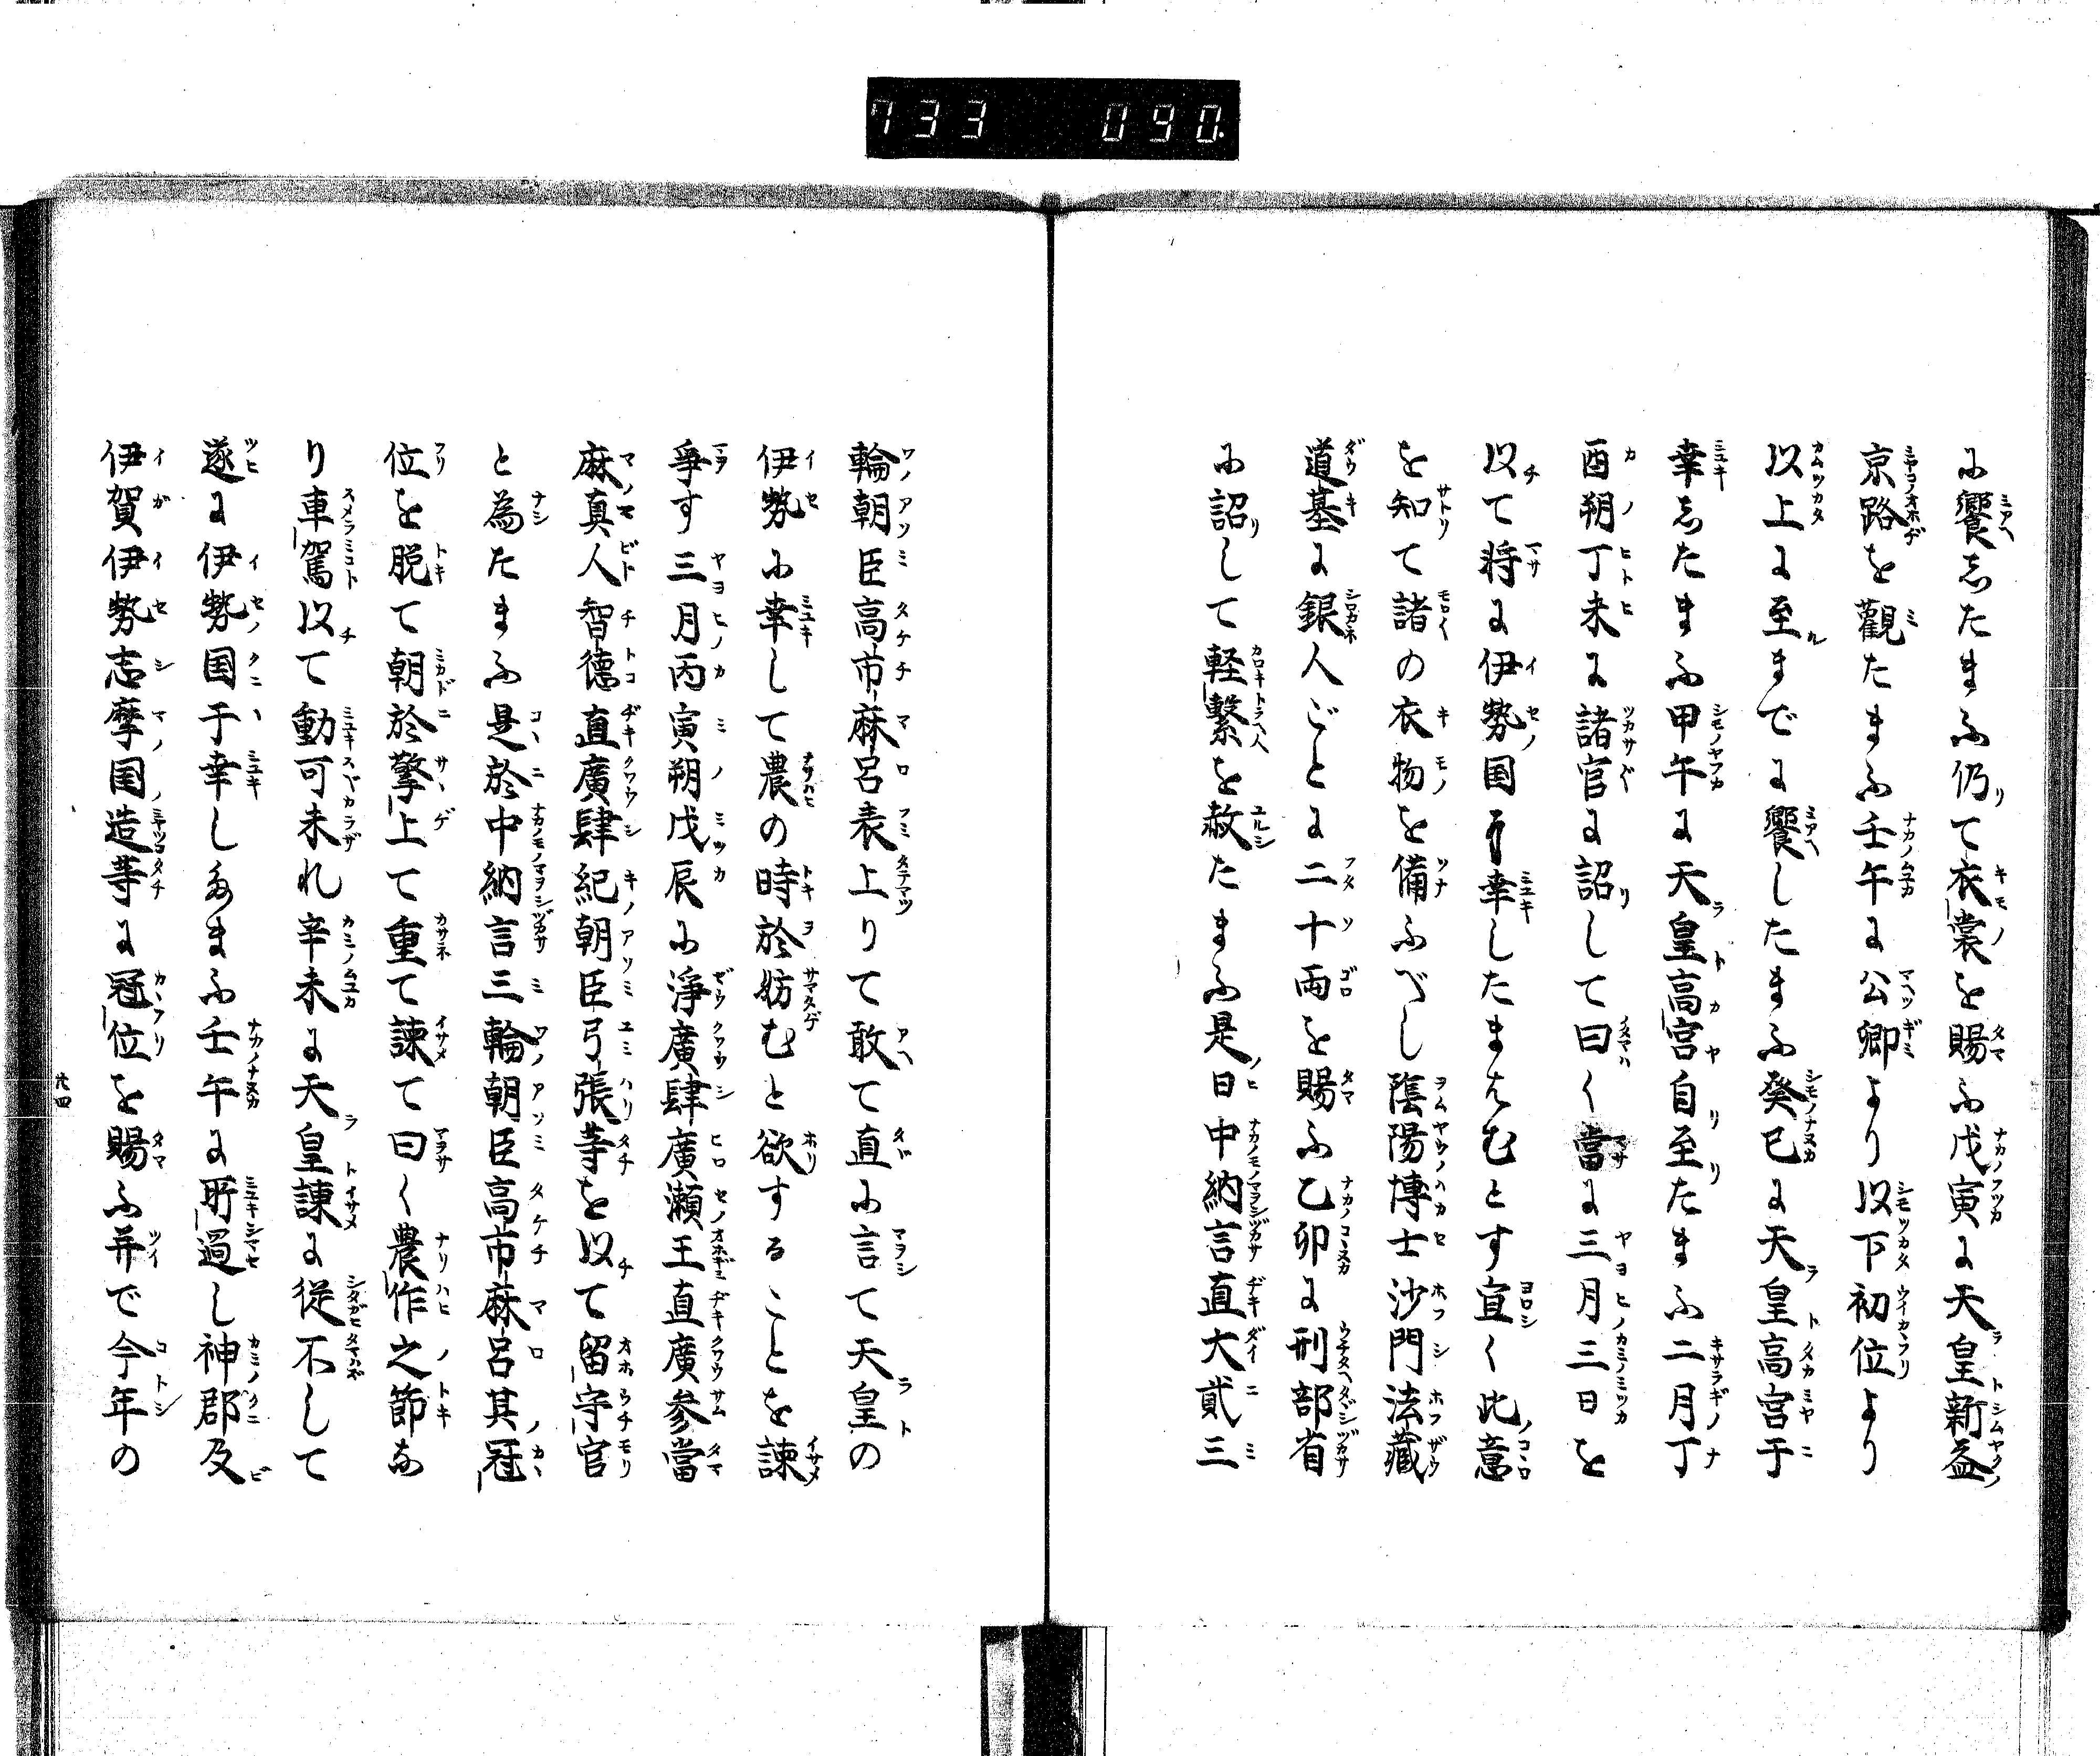 733 090.
に饗したまふ仍て衣裳を賜ふ戊寅に天皇新益
京路を觀たまふ壬午に公卿より以下初位より
以上に至までに饗したまふ癸巳に天皇高宮于
幸したまふ甲午に天皇高宮自至たまふ二月丁
酉朔丁未に諸官に詔して曰く當に三月三日を
以て将に伊勢国于幸したまはむとす宜く此意
を知て諸の衣物を備ふべし陰陽博士沙門法藏
道基に銀人ごとに二十両を賜ふ乙卯に刑部省
に詔して軽繋を赦たまふ是日中納言直大貳三
輪朝臣高市麻呂表上りて敢て直に言て天皇の
伊勢に幸して農の時於妨むと欲することを諫
爭す三月丙寅朔戊辰に淨廣肆廣瀬王直廣参當
麻真人智德直廣肆紀朝臣弓張等を以て留守官
と為たまふ是於中納言三輪朝臣高市麻呂其冠
位を脱て朝於擎上て重て諫て曰く農作之節な
り車駕以て動可未れ辛未に天皇諫に従不して
遂に伊勢国于幸したまふ壬午に所過し神郡及
伊賀伊勢志摩国造等に冠位を賜ふ并で今年の
廿四